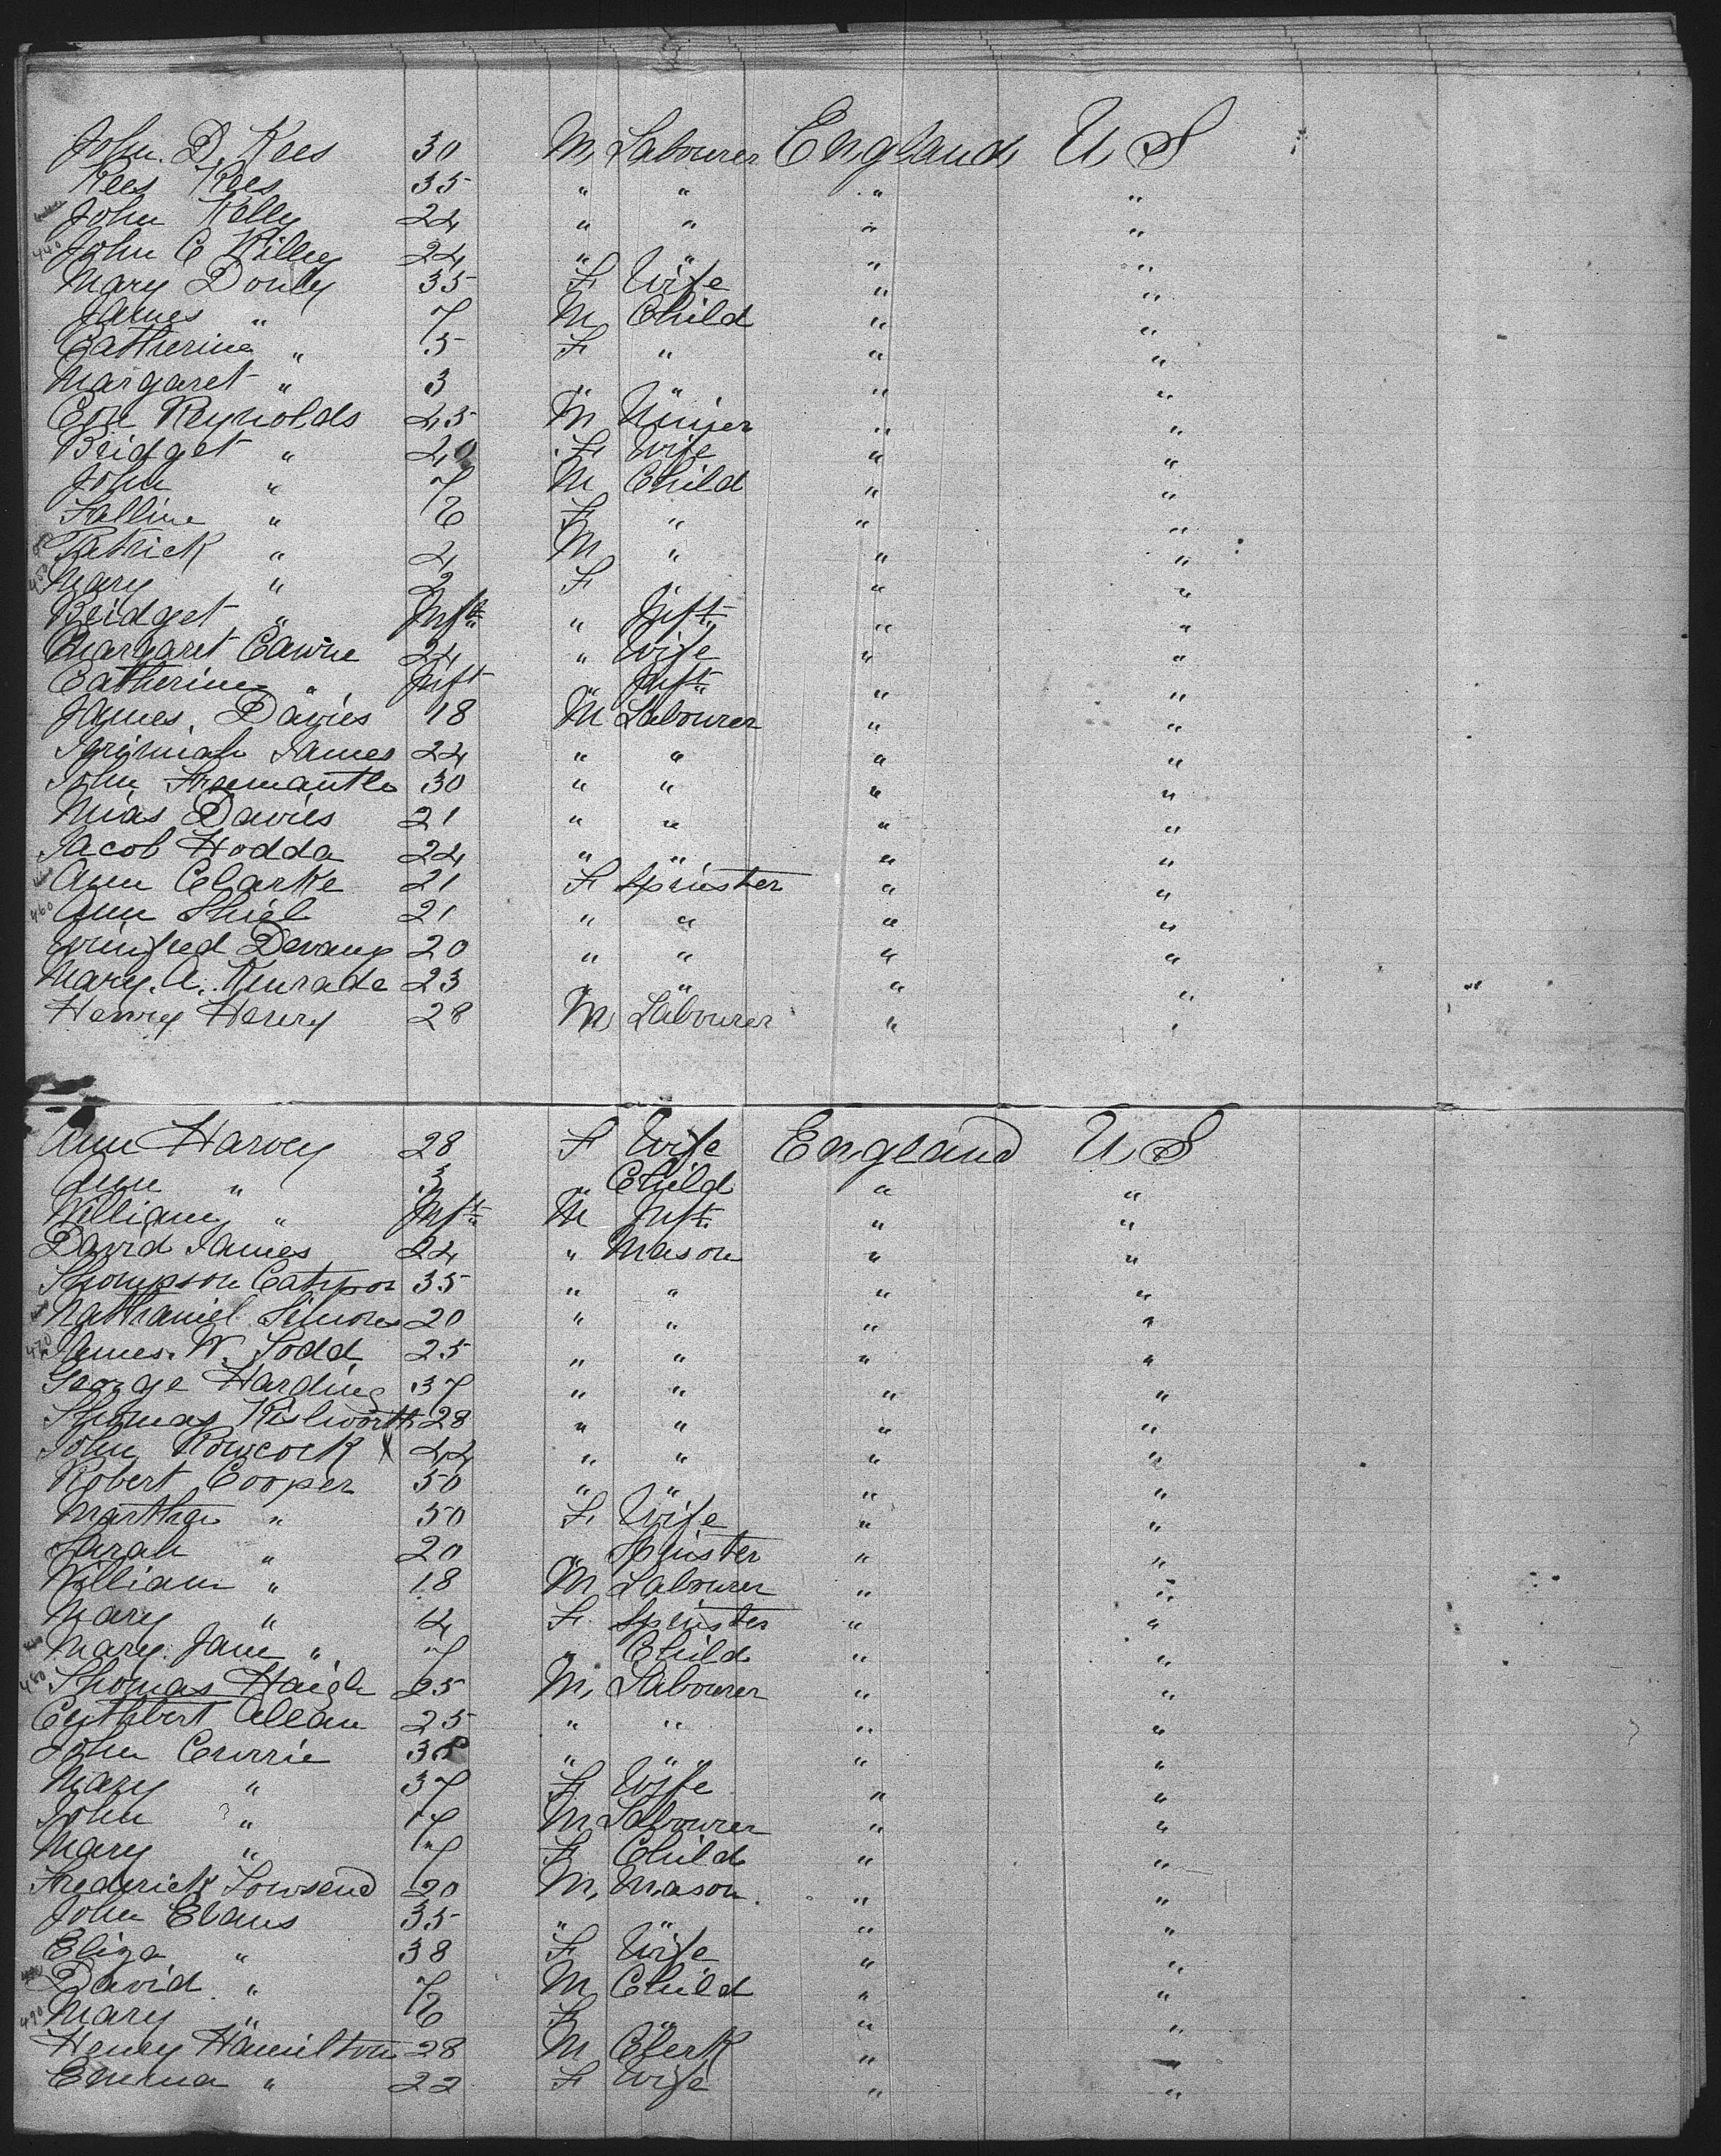 John. D. Rees 30 M Labourer England U S
Rees Rees 35 " " " "
John Kelly 24 " " " "
440 John C Killey 24 " " " "
Mary Douly 35 F Wife " "
James " 7 M Child " "
Catherine " 5 F " " "
Margaret " 3 " " " "
Reynolds 45 M Miner " "
Bridget " 40 F Wife " "
John " 7 M Child " "
" 6 F " " "
Patrick " 4 M " " "
450 Mary " 2 F " " "
Bridget " Inft " Inft " "
Margaret Cawne 24 " Wife " "
Catherine " Inft " Inft " "
James Davies 18 M Labourer " "
Jeremiah James 24 " " " "
John Fremantle 30 " " " "
Davies 21 " " " "
Jacob Hodda 24 " " " "
Ann Clarke 21 F Spinster " "
460 Ann Shiel 21 " " " "
Winifred Devany 20 " " " "
Mary. A. Kinrade 23 " " " "
Henry Henry 28 M Labourer " "
Ann Harvey 28 F Wife England U S
Ann " 3 " Child " "
William " Inft M Inft " "
David James 24 " Mason " "
Thompson 35 " " " "
Nathaniel Simons 20 " " " "
470 James. W. Todd 25 " " " "
George Harding 37 " " " "
Thomas Rishworth 28 " " " "
John Rowcock X 44 " " " "
Robert Cooper 50 " " " "
Martha " 50 F Wife " "
Sarah " 20 " Spinster " "
William " 18 M Labourer " "
Mary " 14 F Spinster " "
Mary Jane " 7 " Child " "
480 Thomas Haigh 25 M Labourer " "
Cuthbert Allan 25 " " " "
John Currie " " " "
Mary " 37 F Wife " "
John " 17 M Labourer " "
Mary " 7 F Child " "
Frederick Towsend 20 M Mason " "
John Evans 35 " " " "
Eliza " 38 F Wife " "
David " 7 M Child " "
490 Mary " 6 F " " "
Henry Hamilton 28 M Clerk " "
Emma " 22 F Wife " "